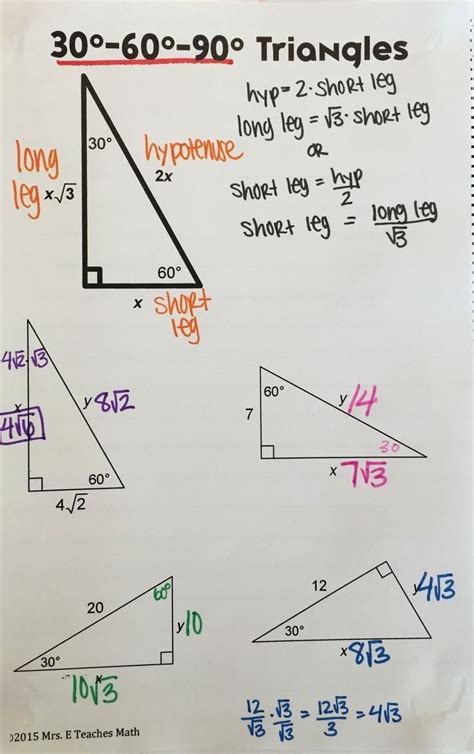 30°-60°-90° Triangles
hyp = 2 · short leg
long leg = √3 · short leg
OR
short leg = hyp/2
short leg = long leg/√3
30°
long leg
x√3
hypotenuse
2x
60°
x
short leg
4√2 · √3
x
4√6
y 8√2
60°
4√2
60°
7
y 14
30
x 7√3
20
60°
y 10
30°
x
10√3
12
y 4√3
30°
x 8√3
12/√3 · √3/√3 = 12√3/3 = 4√3
©2015 Mrs. E Teaches Math